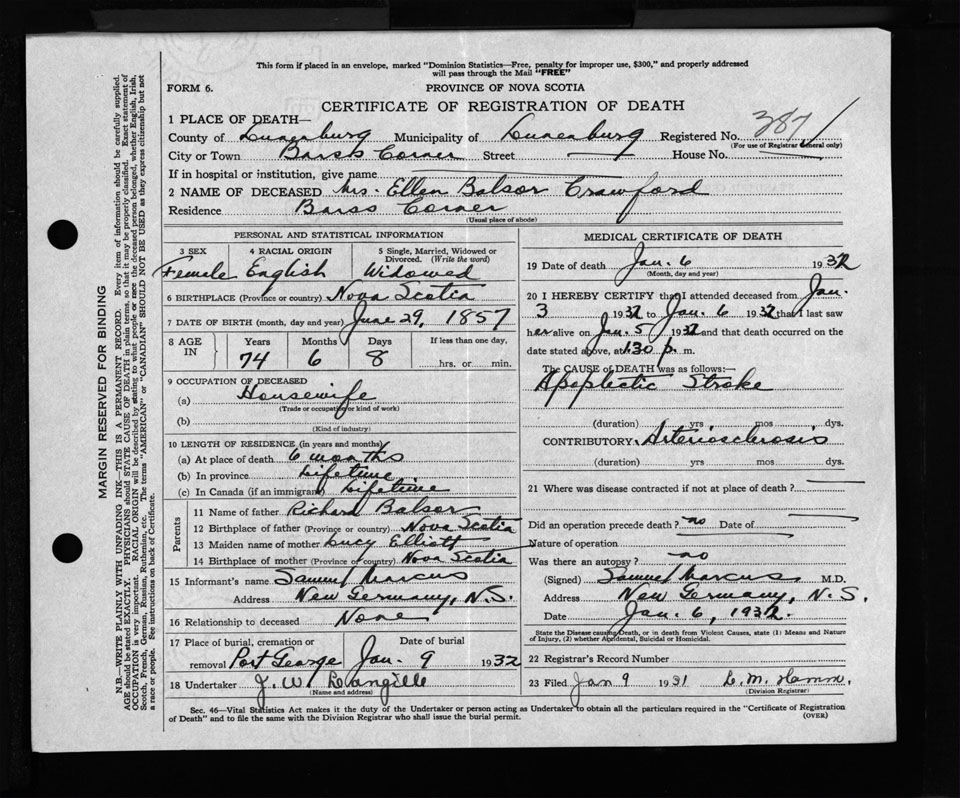 This form if placed in an envelope, marked "Dominion Statistics—Free, penalty for improper use, $300," and properly addressed
will pass through the Mail "FREE"
FORM 6. PROVINCE OF NOVA SCOTIA
CERTIFICATE OF REGISTRATION OF DEATH
1 PLACE OF DEATH—
County of Lunenburg Municipality of Lunenburg Registered No. 387
(For use of Registrar General only)
City or Town Barss Corner Street House No.
If in hospital or institution, give name
2 NAME OF DECEASED Mrs. Ellen Balsor Crawford
Residence Barss Corner
(Usual place of abode)
PERSONAL AND STATISTICAL INFORMATION
3 SEX 4 RACIAL ORIGIN 5 Single, Married, Widowed or Divorced. (Write the word)
Female English Widowed
6 BIRTHPLACE (Province or country) Nova Scotia
7 DATE OF BIRTH (month, day and year) June 29, 1857
8 AGE IN Years Months Days If less than one day,
74 6 8 hrs. or min.
9 OCCUPATION OF DECEASED
(a) Housewife
(Trade or occupation or kind of work)
(b)
(Kind of industry)
10 LENGTH OF RESIDENCE (in years and months)
(a) At place of death 6 months
(b) In province Lifetime
(c) In Canada (if an immigrant) Lifetime
Parents
11 Name of father Richard Balsor
12 Birthplace of father (Province or country) Nova Scotia
13 Maiden name of mother Lucy Elliott
14 Birthplace of mother (Province or country) Nova Scotia
15 Informant's name Samuel Marcus
Address New Germany, N.S.
16 Relationship to deceased None
17 Place of burial, cremation or Date of burial
removal Port George Jan. 9 1932
18 Undertaker J. W. Langille
(Name and address)
MEDICAL CERTIFICATE OF DEATH
19 Date of death Jan. 6 1932
(Month, day and year)
20 I HEREBY CERTIFY that I attended deceased from Jan.
3 1932 to Jan. 6 1932 that I last saw
her alive on Jan. 5 1932 and that death occurred on the
date stated above, at 1.30 p. m.
The CAUSE OF DEATH was as follows:—
Apoplectic Stroke
(duration) yrs mos dys.
CONTRIBUTORY Arteriosclerosis
(duration) yrs mos dys.
21 Where was disease contracted if not at place of death?
Did an operation precede death? no Date of
Nature of operation
Was there an autopsy? no
(Signed) Samuel Marcus M.D.
Address New Germany, N. S.
Date Jan. 6, 1932.
State the Disease causing Death, or in death from Violent Causes, state (1) Means and Nature
of Injury, (2) whether Accidental, Suicidal or Homicidal.
22 Registrar's Record Number
23 Filed Jan 9 1931 D. M. Hamm.
(Division Registrar)
Sec. 46—Vital Statistics Act makes it the duty of the Undertaker or person acting as Undertaker to obtain all the particulars required in the "Certificate of Registration
of Death" and to file the same with the Division Registrar who shall issue the burial permit. (OVER)
MARGIN RESERVED FOR BINDING
N.B.—WRITE PLAINLY WITH UNFADING INK—THIS IS A PERMANENT RECORD. Every item of information should be carefully supplied.
AGE should be stated EXACTLY. PHYSICIANS should STATE CAUSE OF DEATH in plain terms, so that it may be properly classified. Exact statement of
OCCUPATION is very important. RACIAL ORIGIN will be described by stating to what people or race the deceased person belonged, whether English, Irish,
Scotch, French, German, Russian, Ruthenian, etc. The terms "AMERICAN" or "CANADIAN" SHOULD NOT BE USED as they express citizenship but not
a race or people. See instructions on back of Certificate.